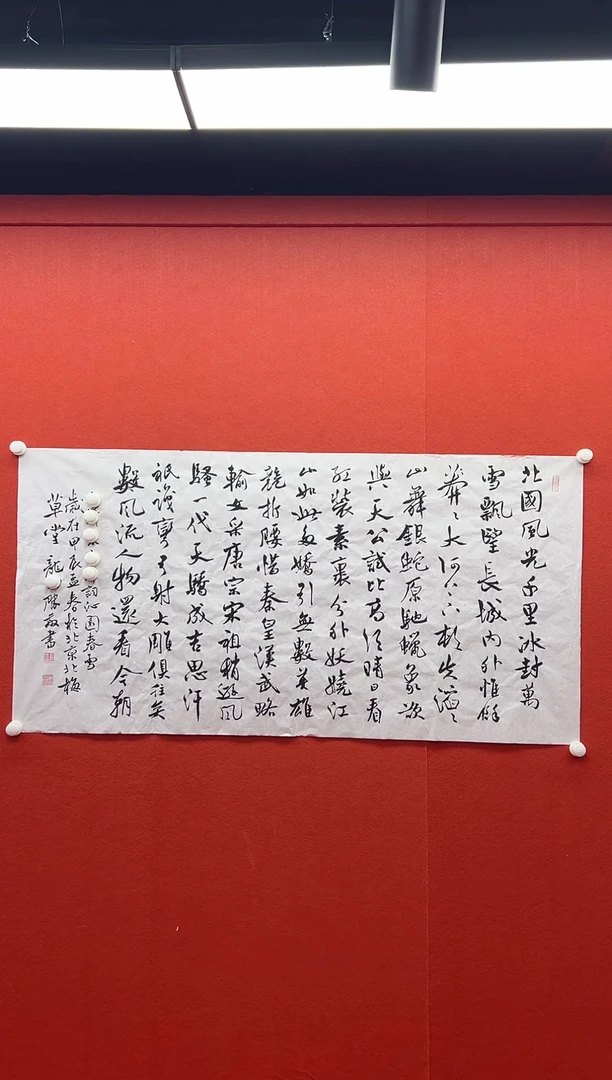 北國風光千里冰封萬
雪飄望長城内外惟餘
莽〻大河上下頓失滔〻
山舞銀蛇原馳蠟象欲
與天公試比高須晴日看
紅裝素裹分外妖嬈江
山如此多嬌引無數英雄
競折腰惜秦皇漢武略
輸文采唐宗宋祖稍遜風
騷一代天驕成吉思汗
祇識彎弓射大雕俱往矣
數風流人物還看今朝
詞沁園春雪
歲在甲辰孟春於北京北梅
草堂龍書